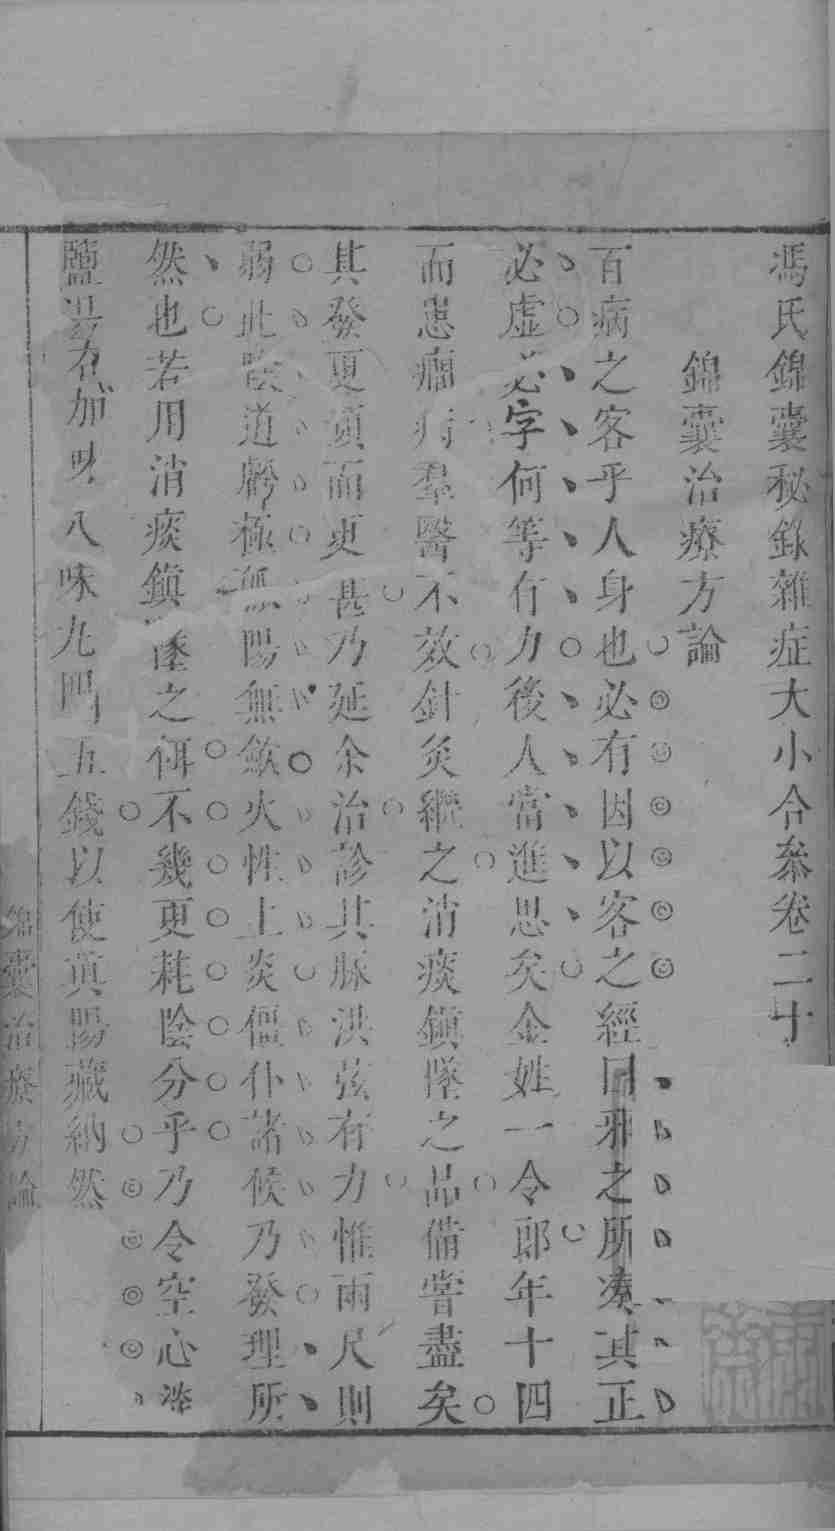 馮氏錦囊秘錄雜症大小合參卷二十
錦囊治療方論
百病之客乎人身也必有因以客之經曰邪之所凑其正
必虛必字何等有力後人當進思矣金姓一令郎年十四
而患癇病羣醫不效針灸繼之消痰鎮墜之品備嘗盡矣
其發更頻而更甚乃延余治診其脉洪弦有力惟兩尺則
弱此陰道虧極無陽無斂火性上炎僵仆諸候乃發理所
然也若用消痰鎮墜之餌不幾更耗陰分乎乃令空心淡
鹽湯服加味八味丸四五錢以使真陽藏納然
錦囊治療方論